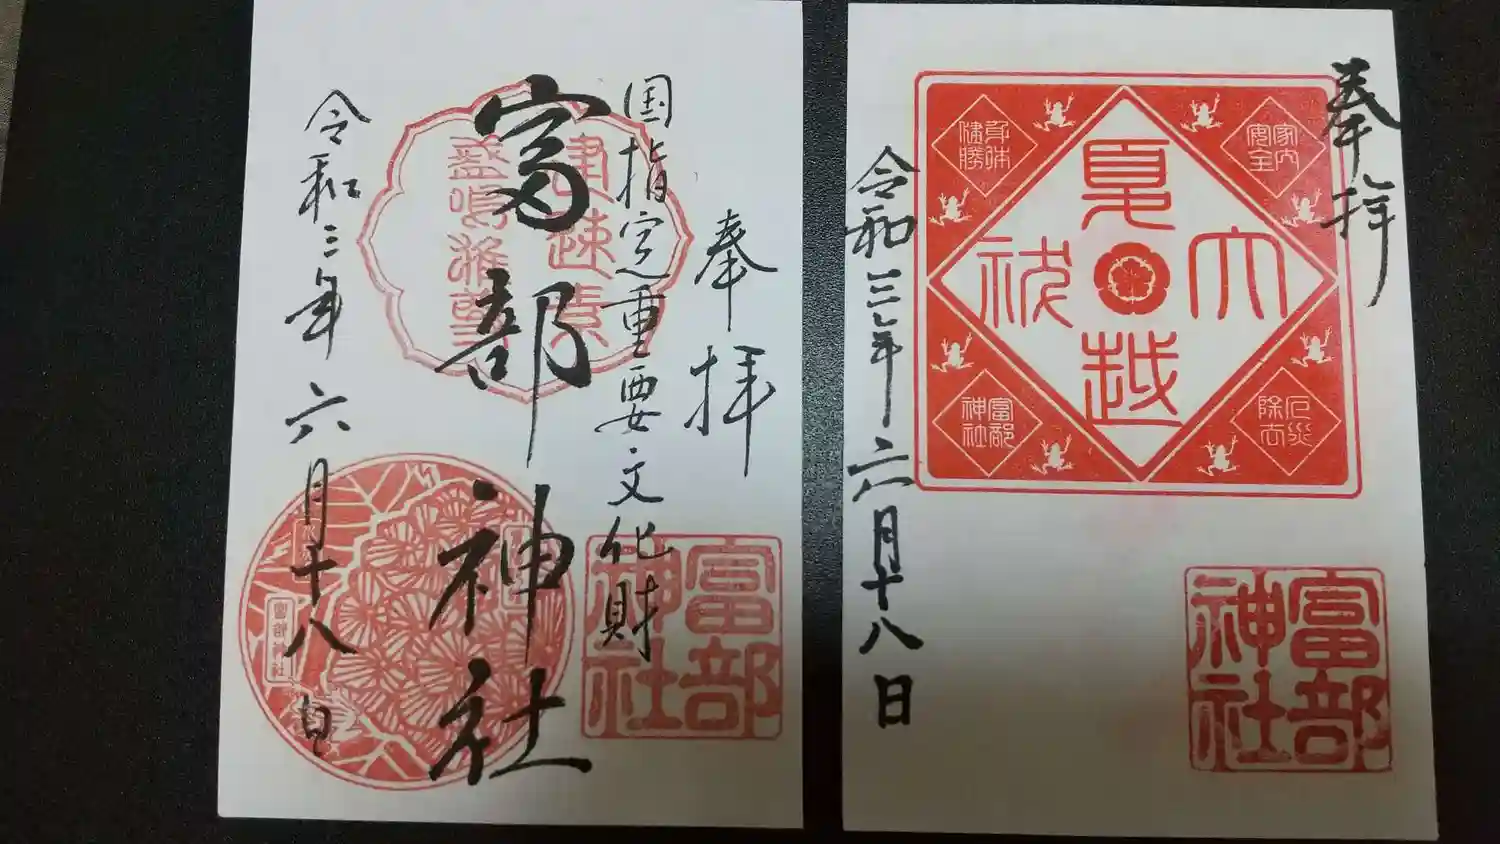 奉拝
国指定重要文化財
富部神社
令和三年六月十八日
津速素
盞嗚雅
富部
神社
富部神社
奉拝
令和三年六月十八日
夏越大祓
家内
安全
身体
健勝
厄災
除去
富部
神社
富部
神社